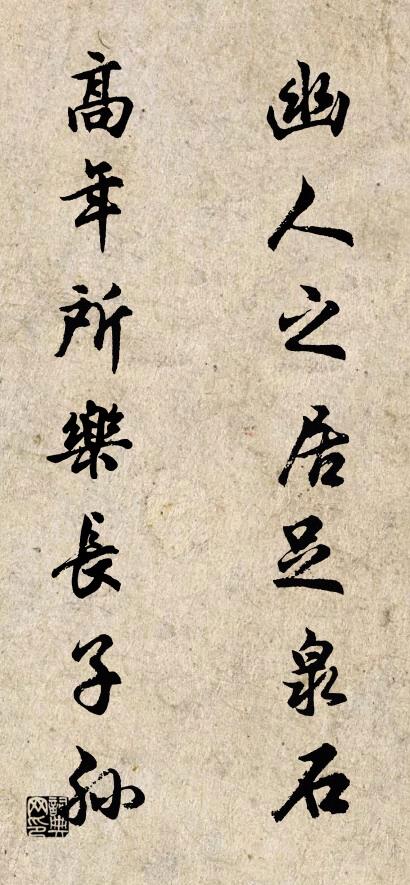 幽人之居足泉石
高年所樂長子孫